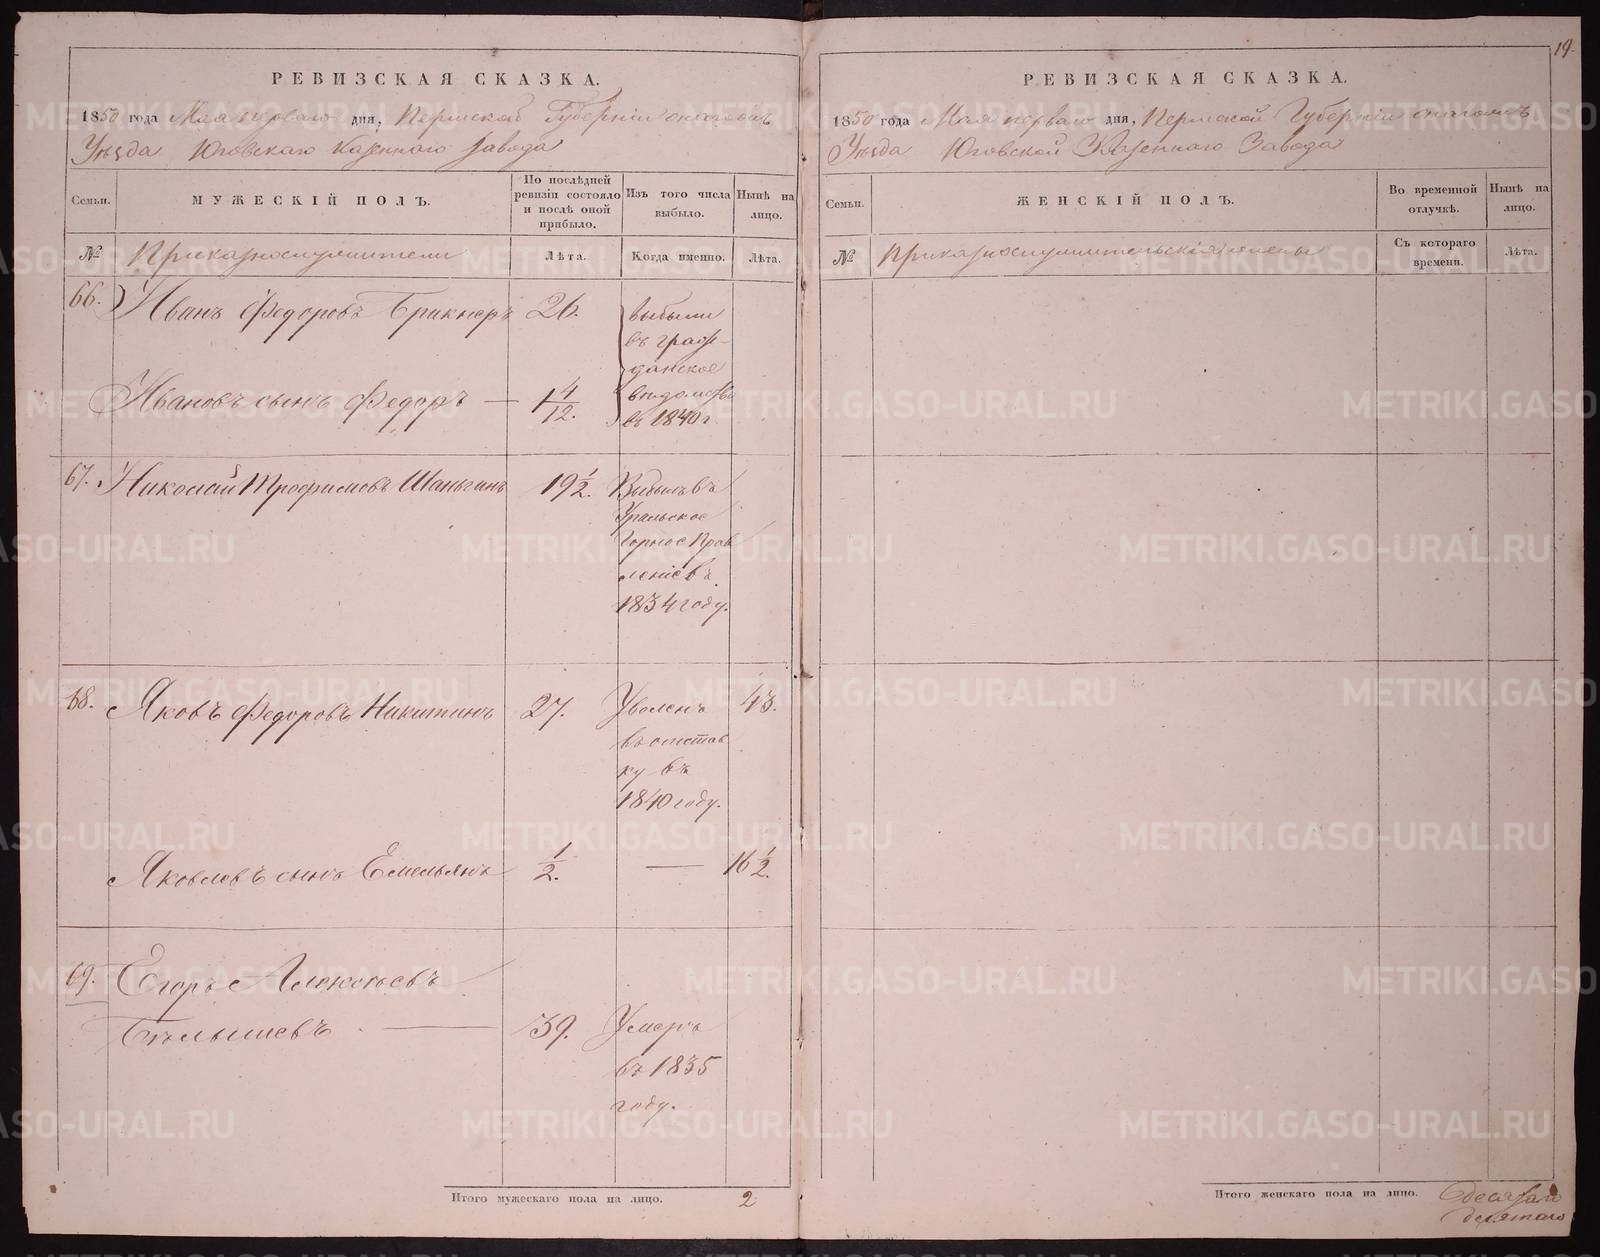 РЕВИЗСКАЯ СКАЗКА.
1850 года Мая перваго дня, Пермской Губерніи
Уѣзда Юговскаго казеннаго завода
Семьи. МУЖЕСКІЙ ПОЛЪ. По послѣдней ревизіи состояло и послѣ оной прибыло. Изъ того числа выбыло. Нынѣ на лицо.
№ Приказнослужители Лѣта. Когда именно. Лѣта.
66. Иванъ Федоровъ Брикнеръ 26. выбыли
въ граж-
данское
Ивановъ сынъ Федоръ — 1 4/12. вѣдомство
въ 1840 г
67. Николай Трофимовъ Шаньгинъ 19 1/2. Выбылъ въ
Уральское
Горное Прав
леніе въ
1834 году.
68. Яковъ Федоровъ Никитинъ 27. Уволенъ 43.
въ отстав
ку въ
1840 году.
Яковлевъ сынъ Емельянъ 1/2. — 16 1/2.
69. Егоръ Алексѣевъ
Бѣлышевъ — 39. Умеръ
въ 1835
году.
Итого мужескаго пола на лицо. 2
19.
РЕВИЗСКАЯ СКАЗКА.
1850 года Мая перваго дня, Пермской Губерніи
Уѣзда Юговской Казеннаго Завода
Семьи. ЖЕНСКІЙ ПОЛЪ. Во временной отлучкѣ. Нынѣ на лицо.
№ Приказнослужительскія жены Съ котораго времени. Лѣта.
Итого женскаго пола на лицо.
METRIKI.GASO-URAL.RU